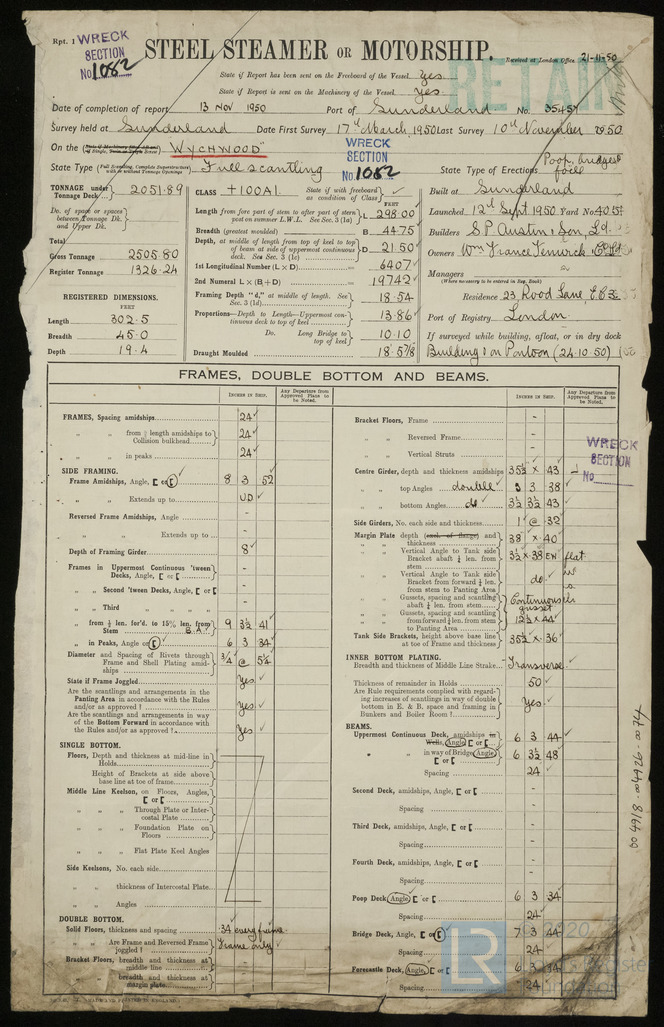 Rpt. 1
WRECK
SECTION
No 1082
STEEL STEAMER OR MOTORSHIP.
Received at London Office 21-11-50
RETAIN
State if Report has been sent on the Freeboard of the Vessel Yes
State if Report is sent on the Machinery of the Vessel Yes
Date of completion of report 13 Nov 1950 Port of Sunderland No. 35457
Survey held at Sunderland Date First Survey 17th March 1950 Last Survey 10th November 1950
On the "WYCHWOOD"
WRECK
SECTION
No. 1082
State Type (Full Scantling, Complete Superstructure with or without Tonnage Openings) Full scantling
State Type of Erections Poop, bridge & focle
TONNAGE under Tonnage Deck 2051.89
Do. of space or spaces between Tonnage Dk. and Upper Dk.
Total
Gross Tonnage 2505.80
Register Tonnage 1326.24
REGISTERED DIMENSIONS.
FEET
Length 302.5
Breadth 45.0
Depth 19.4
CLASS +100A1. State if with freeboard as condition of Class
FEET
Length from fore part of stem to after part of stern post on summer L.W.L. See Sec. 3 (1a) L 298.00
Breadth (greatest moulded) B 44.75
Depth, at middle of length from top of keel to top of beam at side of uppermost continuous deck. See Sec. 3 (1c) D 21.50
1st Longitudinal Number (L × D) 6407
2nd Numeral L × (B+D) 19742
Framing Depth "d," at middle of length. See Sec. 3 (1d) 18.54
Proportions—Depth to Length—Uppermost continuous deck to top of keel 13.86
Do. Long Bridge to top of keel 10.10
Draught Moulded 18.5⅞
Built at Sunderland
Launched 12th Sept 1950 Yard No. 405
Builders S P Austin & Son, Ld.
Owners Wm France Fenwick & Co Ld
Managers
(Where necessary to be entered in Reg. Book)
Residence 23, Rood Lane, E.C.3
Port of Registry London
If surveyed while building, afloat, or in dry dock
Building & on Pontoon (24.10.50)
FRAMES, DOUBLE BOTTOM AND BEAMS.
INCHES IN SHIP.
Any Departure from Approved Plans to be Noted.
FRAMES, Spacing amidships 24
" " from ⅕ length amidships to Collision bulkhead 24
" " in peaks 24
SIDE FRAMING.
Frame Amidships, Angle, [ or [ 8 3 52
" " Extends up to UD
Reversed Frame Amidships, Angle -
" " Extends up to -
Depth of Framing Girder 8
Frames in Uppermost Continuous 'tween Decks, Angle, [ or [ -
" Second 'tween Decks, Angle, [ or [ -
" Third " " " " -
" from ⅕ len. for'd. to 15% len. from Stem 9 3½ 41
" in Peaks, Angle or [ 6 3 34
Diameter and Spacing of Rivets through Frame and Shell Plating amidships ¾ @ 5¼
State if Frame Joggled Yes
Are the scantlings and arrangements in the Panting Area in accordance with the Rules and/or as approved? Yes
Are the scantlings and arrangements in way of the Bottom Forward in accordance with the Rules and/or as approved? Yes
SINGLE BOTTOM.
Floors, Depth and thickness at mid-line in Holds
Height of Brackets at side above base line at toe of frame
Middle Line Keelson, on Floors, Angles, [ or [
" " " Through Plate or Intercostal Plate
" " " Foundation Plate on Floors
" " " Flat Plate Keel Angles
Side Keelsons, No. each side
" " thickness of Intercostal Plate
" " Angles
DOUBLE BOTTOM.
Solid Floors, thickness and spacing .34 every frame
" " Are Frame and Reversed Frame joggled? Frame only
Bracket Floors, breadth and thickness at middle line -
" " breadth and thickness at margin plate -
INCHES IN SHIP.
Any Departure from Approved Plans to be Noted.
Bracket Floors, Frame -
" " Reversed Frame -
" " Vertical Struts -
WRECK
SECTION
No
Centre Girder, depth and thickness amidships 35½ × 43
" " top Angles double 3 3 38
" " bottom Angles do 3½ 3½ 43
Side Girders, No. each side and thickness 1 @ .32
Margin Plate depth (excl. of flange) and thickness 38 × .40
" " Vertical Angle to Tank side Bracket abaft ¼ len. from stem 3½ × 38 EW flat
" " Vertical Angle to Tank side Bracket from forward ¼ len. from stem to Panting Area do.
" " Gussets, spacing and scantling abaft ¼ len. from stem Continuous gusset
" " Gussets, spacing and scantling from forward ¼ len. from stem to Panting Area 12½ × 44
Tank Side Brackets, height above base line at toe of Frame and thickness 35½ × .36
INNER BOTTOM PLATING.
Breadth and thickness of Middle Line Strake Transverse.
Thickness of remainder in Holds 50
Are Rule requirements complied with regarding increases of scantlings in way of double bottom in E. & B. space and framing in Bunkers and Boiler Room? Yes
BEAMS.
Uppermost Continuous Deck, amidships in Wells, Angle, [ or [ 6 3 44
" " in way of Bridge, Angle, [ or [ 6 3½ 48
Spacing 24
Second Deck, amidships, Angle, [ or [ -
Spacing -
Third Deck, amidships, Angle, [ or [ -
Spacing -
Fourth Deck, amidships, Angle, [ or [ -
Spacing -
Poop Deck, Angle, [ or [ 6 3 34
Spacing 24
Bridge Deck, Angle, [ or [ 7 3 44
Spacing 24
Forecastle Deck, Angle, [ or [ 6 34
Spacing 24
004918-004926-0074
LR
© 2020
Lloyd's Register
Foundation